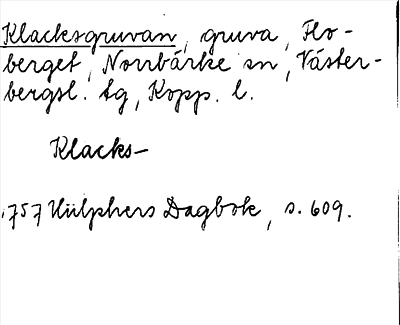 Klacksgruvan, gruva, Flo-
berget, Norrbärke sn, Väster-
bergsl. tg, Kopp. l.
Klacks-
1757 Hülphers Dagbok, s. 609.